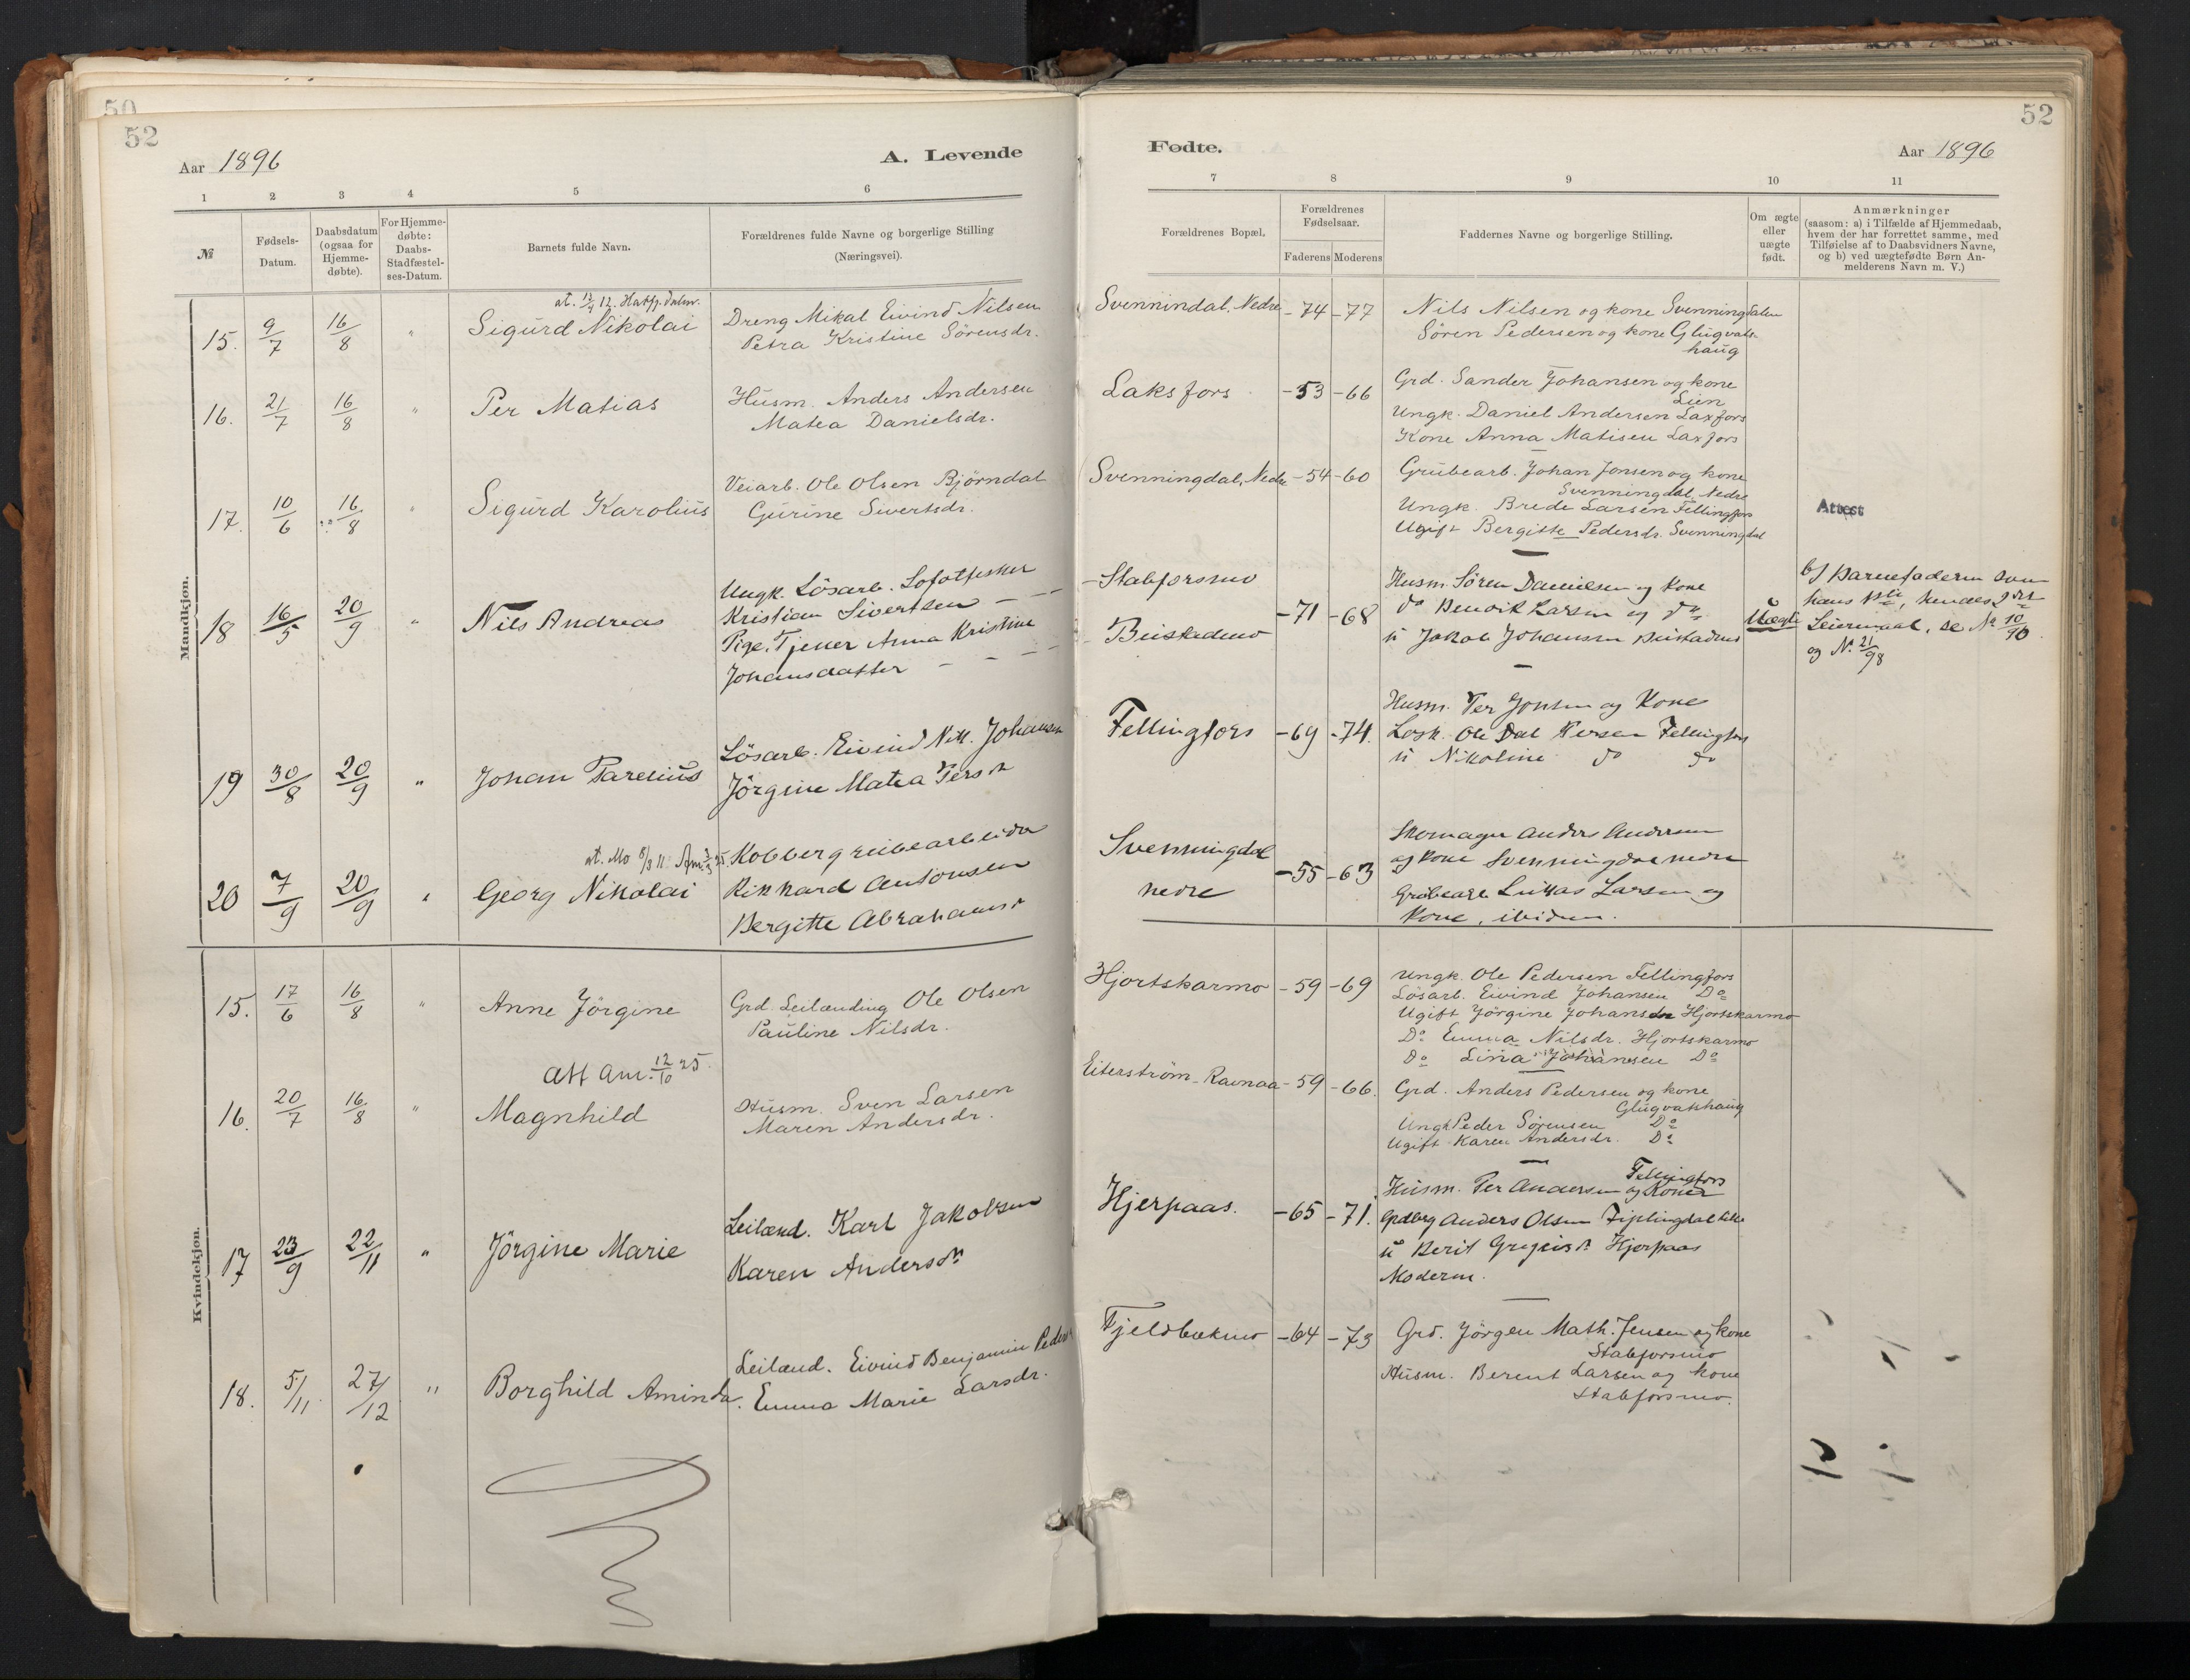 50
52
Aar 1896
A. Levende
1 2 3 4 5 6
№
Fødsels-
Datum.
Daabsdatum
(ogsaa for
Hjemme-
døbte).
For Hjemme-
døbte:
Daabs-
Stadfæstel-
ses-Datum.
Barnets fulde Navn.
Forældrenes fulde Navne og borgerlige Stilling
(Næringsvei).
Mandkjøn.
15. 9/7 16/8 "
Sigurd Nikolai
Dreng Mikal Eivind Nilsen
Petra Kristine Sörensdr.
16. 21/7 16/8 " Per Matias
Husm. Anders Andersen
Matea Danielsdr.
17. 10/6 16/8 " Sigurd Karolius
Veiarb. Ole Olsen Björndal
Gurine Sivertsdr.
18 16/5 20/9 " Nils Andreas
Ungk. Lösarb. Lofotfisker
Kristian Sivertsen
Pige, Tjener Anna Kristine
Johansdatter
19 30/8 20/9 " Johan Parelius
Lösarb. Eivind Nik. Johansen
Jörgine Matea Persdr
20 7/9 20/9 " Georg Nikolai
Kobbergrubearbeider
Rikhard Antonsen
Bergitte Abrahamsdr
Kvindekjøn.
15. 17/6 16/8 " Anne Jörgine
Grd. Leilænding Ole Olsen
Pauline Nilsdr.
Att Am. 12/10 25.
16. 20/7 16/8 " Magnhild
Husm. Sven Larsen
Maren Andersdr.
17 23/9 22/11 " Jörgine Marie
Leilænd. Karl Jakobsen
Karen Andersdr
18. 5/11 27/12 " Borghild Aminda.
Leilænd. Eivind Benjamin Peders
Emma Marie Larsdr.
52
Fødte.
Aar 1896
7 8 9 10 11
Forældrenes Bopæl.
Forældrenes
Fødselsaar.
Faderens Moderens
Faddernes Navne og borgerlige Stilling.
Om ægte
eller
uægte
født.
Anmærkninger
(saasom: a) i Tilfælde af Hjemmedaab,
hvem der har forrettet samme, med
Tilføielse af to Daabsvidners Navne,
og b) ved uægtefødte Børn An-
melderens Navn m. V.)
Svennindal, Nedre -74 -77
Nils Nilsen og kone Svenningdalen
Sören Pedersen og kone Glugvats-
haug
Laksfors -53 -66
Grd. Sander Johansen og kone
Lien
Ungk. Daniel Andersen Laxfors
Kone Anna Matisen Laxfors
Svenningdal, Nedre -54 -60
Grubearb. Johan Jonsen og kone
Svenningdal, Nedre
Ungk. Brede Larsen Fellingfors
Ugift Bergitte Pedersdr. Svenningdal
Attest
Stabforsmo
Husm. Sören Danielsen og Kone
-71 -68
do Bendik Larsen og do
u Jakob Johansen
Uægte
b) Barnefaderen
hans 1ste, hendes 2det
Leiermaal, se No 10/90
og No 21/98
Fellingfors -69 -74.
Husm. Per Jonsen og Kone
Ole Dal Persen Fellingfors
u Nikoline do do
Svenningdal
nedre
-55 -63
Skomager Anders Andersen
og Kone Svenningdal nedre
Grubearb Lukas Larsen og
Kone, ibidem.
Hjortskarmo -59 -69
Ungk. Ole Pedersen Fellingfors
Lösarb. Eivind Johansen Do
Ugift Jörgine Johansdr Hjortskarmo
Do Emma Nilsdr. Hjortskarmo
Do Lina Johansen Do
Eiterström-Ravnaa -59 -66.
Grd. Anders Pedersen og kone
Glugvatshaug
Ungk Peder Sörensen Do
Ugift Karen Andersdr. Do
Hjerpaas. -65 -71.
Fellingfors
Husm. Per Andersen og Kone
Anders Olsen Fiplingdal
u Berit Hjerpaas
Moderen.
Fjeldbækmo -64 -73
Grd. Jörgen Math. Jensen og kone
Stabforsmo
Husm. Berent Larsen og kone
Stabforsmo.